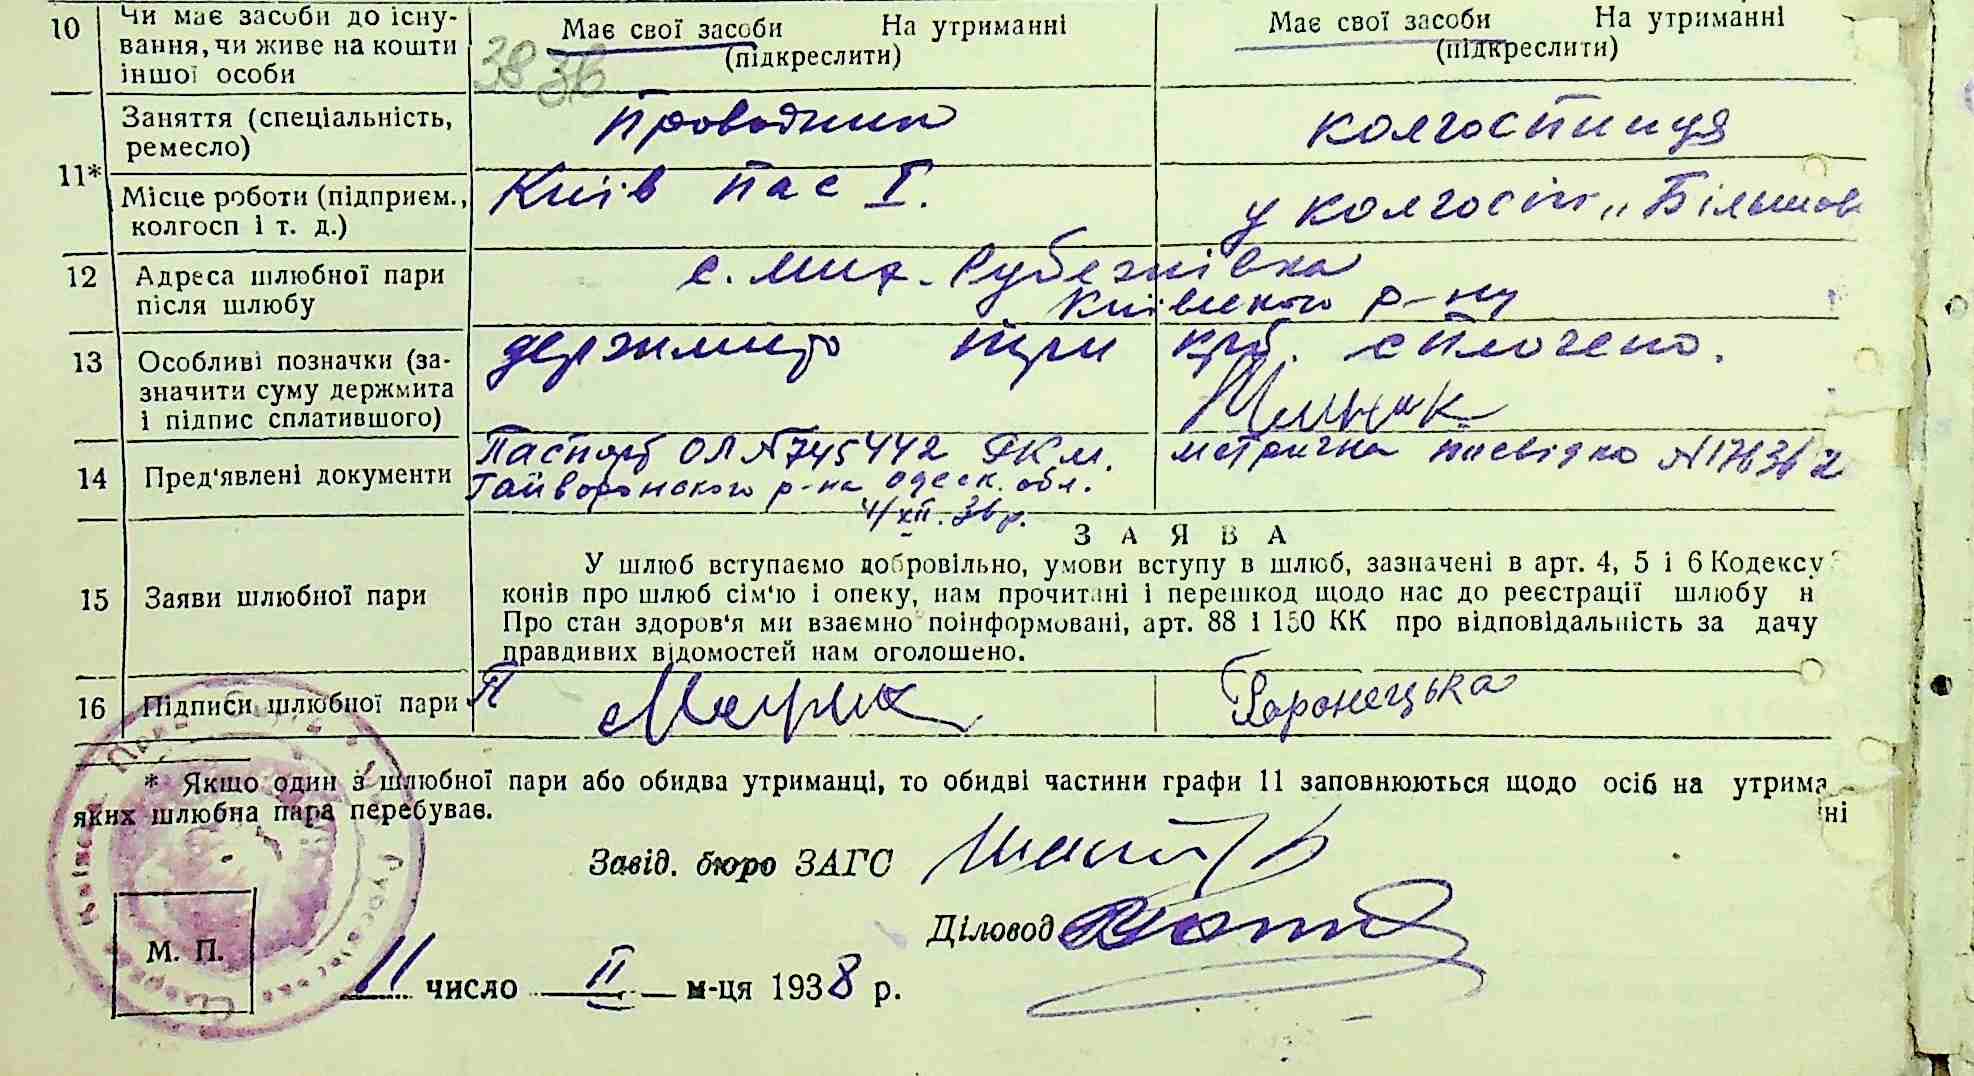 10 Чи має засоби до існу-
вання, чи живе на кошти
іншої особи
Має свої засоби На утриманні
(підкреслити)
Має свої засоби На утриманні
(підкреслити)
11*
Заняття (спеціальність,
ремесло)
Проводник
колгоспниця
Місце роботи (підприєм.,
колгосп і т. д.)
Київ Пас I.
у колгоспі „Більшов
12 Адреса шлюбної пари
після шлюбу
с. Мих. Рубежнівка
Київского р-ну
13 Особливі позначки (за-
значити суму держмита
і підпис сплатившого)
держмито три крб. сплочено.
14 Пред'явлені документи
Паспорт ОЛ №745442 РКМ.
Гайворонского р-на одеск. обл.
4/XII. 36 р.
метрична посвідка №
15 Заяви шлюбної пари
ЗАЯВА
У шлюб вступаємо добровільно, умови вступу в шлюб, зазначені в арт. 4, 5 і 6 Кодексу
конів про шлюб сім'ю і опеку, нам прочитані і перешкод щодо нас до реєстрації шлюбу н
Про стан здоров'я ми взаємно поінформовані, арт. 88 і 150 КК про відповідальність за дачу
правдивих відомостей нам оголошено.
16 Підписи шлюбної пари
Воронецька
* Якщо один з шлюбної пари або обидва утриманці, то обидві частини графи 11 заповнюються щодо осіб на утрима
ні
яких шлюбна пара перебуває.
Завід. бюро ЗАГС
Діловод
М. П.
11 число II м-ця 1938 р.